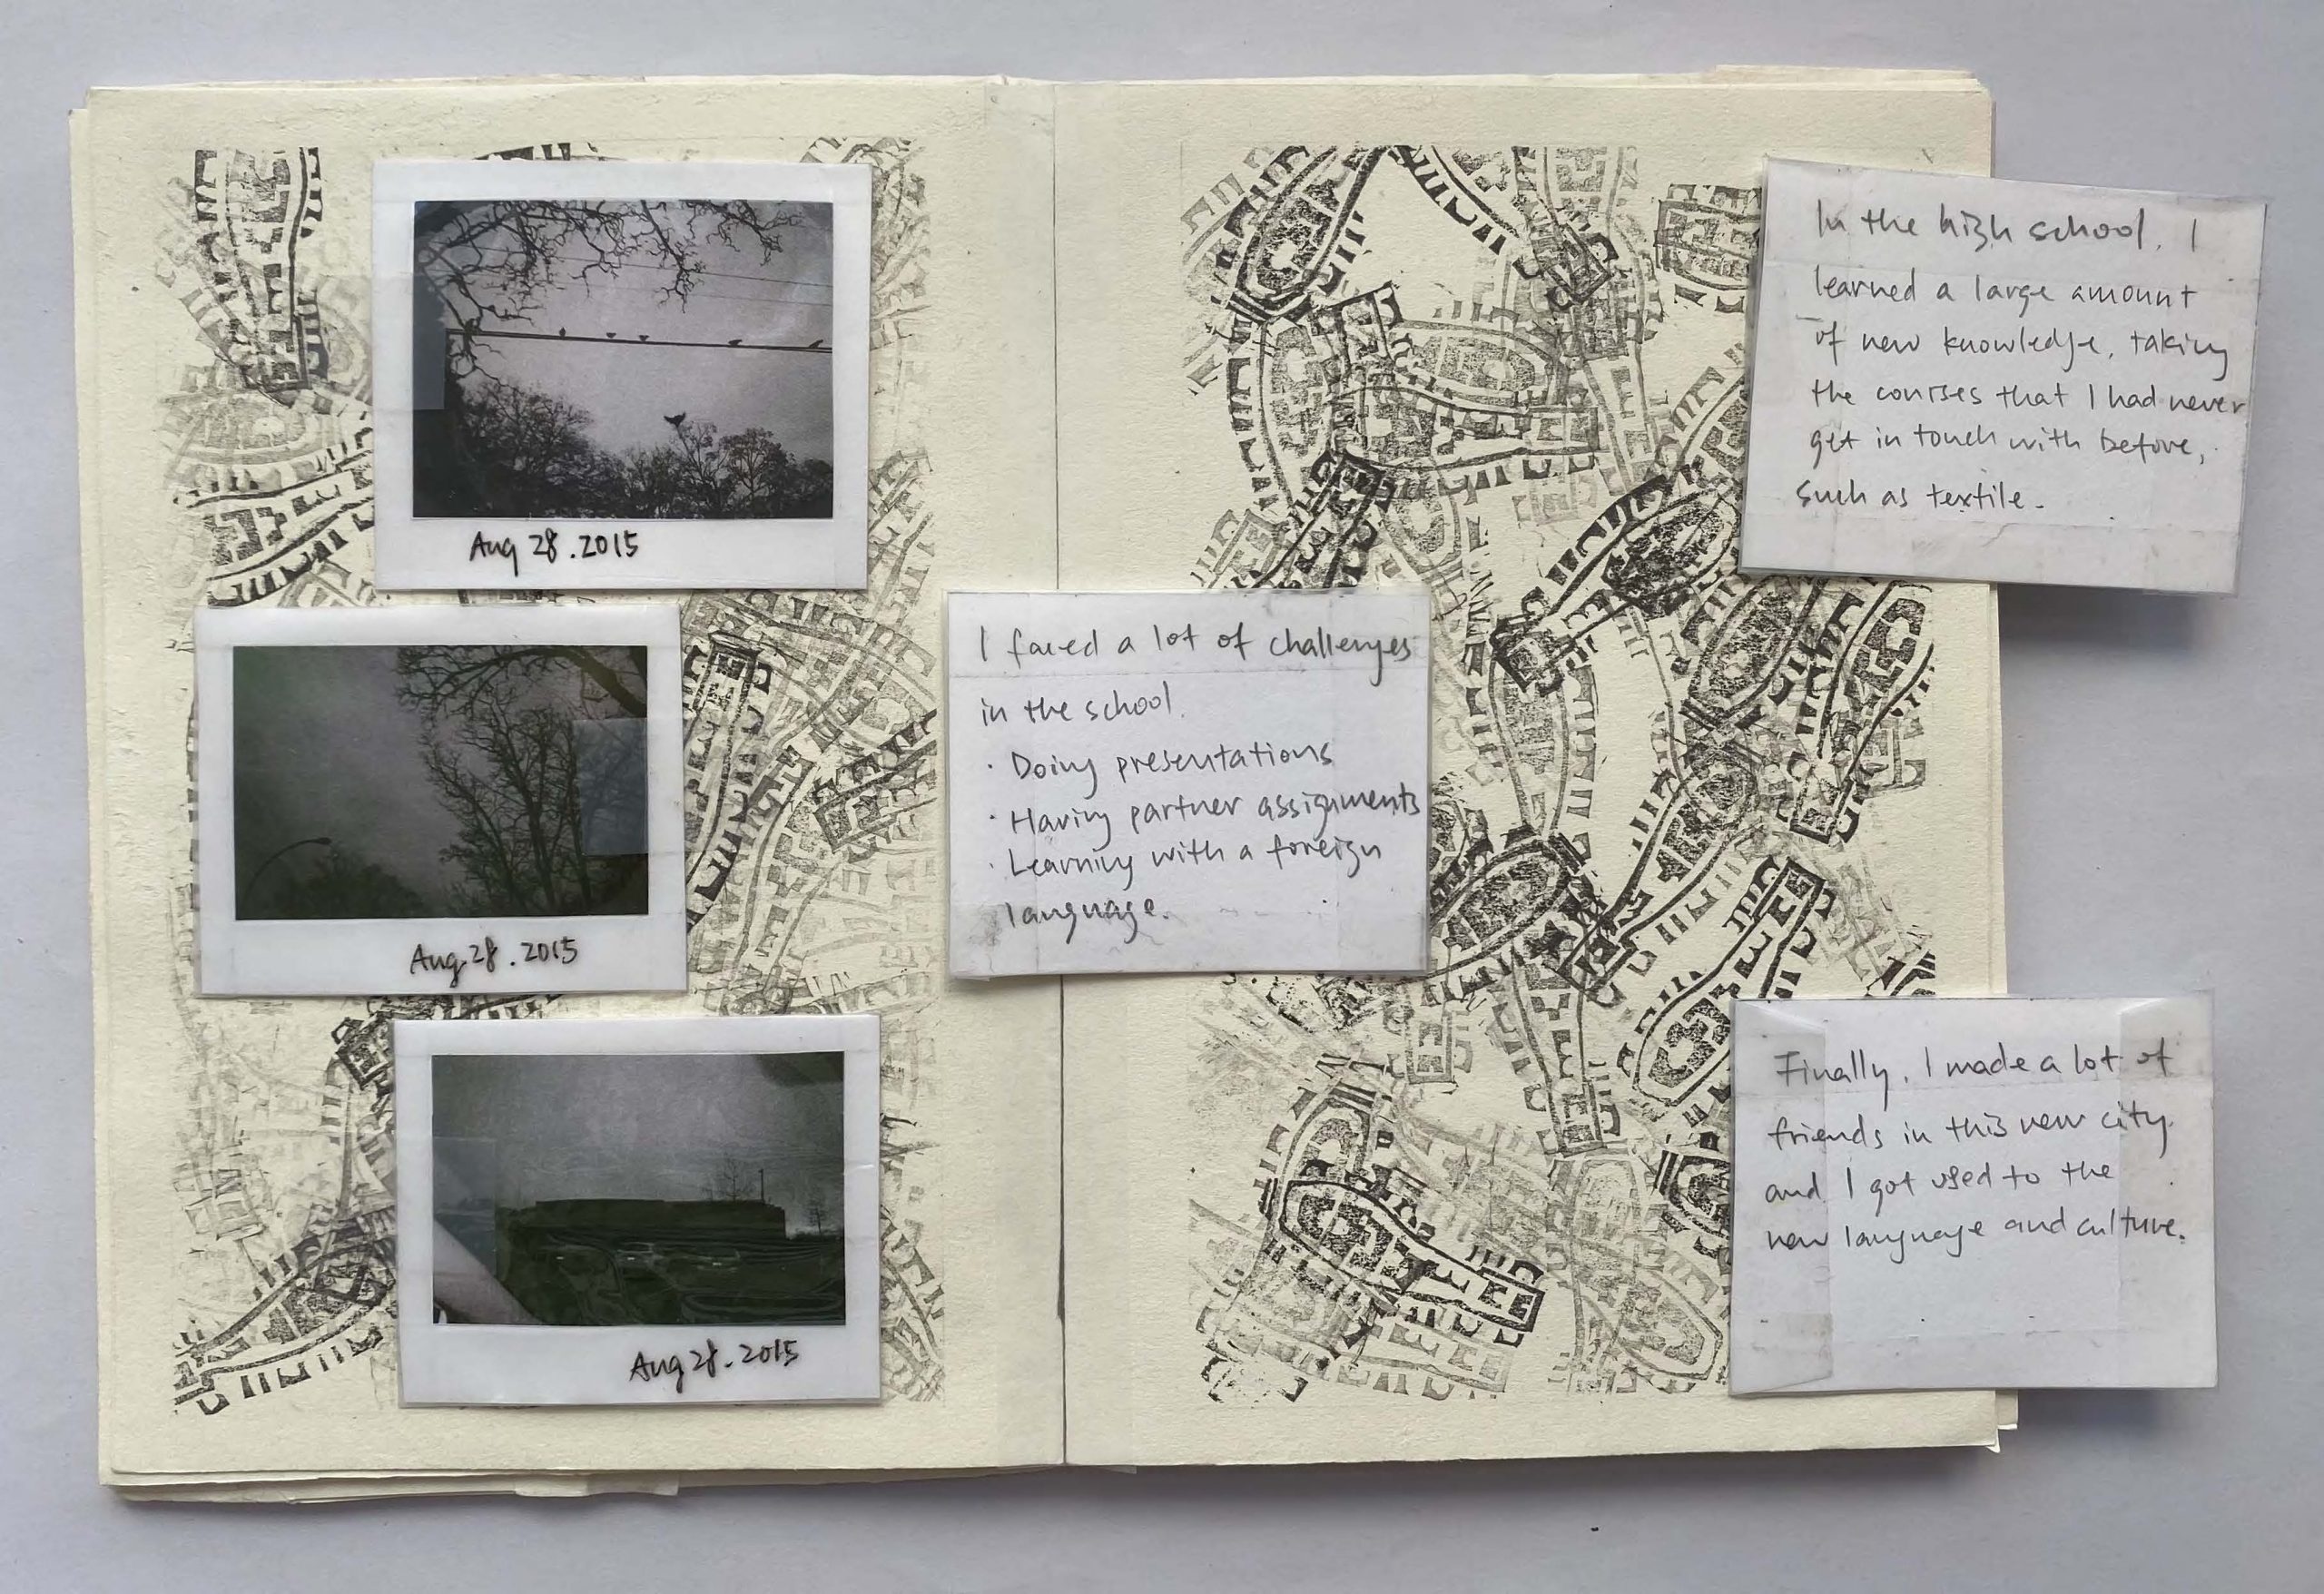 Aug 28.2015
Aug 28.2015
Aug 28.2015
I faced a lot of challenges
in the school.
· Doing presentations
· Having partner assignments
· Learning with a foreign
language.
In the high school, I
learned a large amount
of new knowledge, taking
the courses that I had never
get in touch with before,
such as textile.
Finally, I made a lot of
friends in this new city.
and I got used to the
new language and culture.